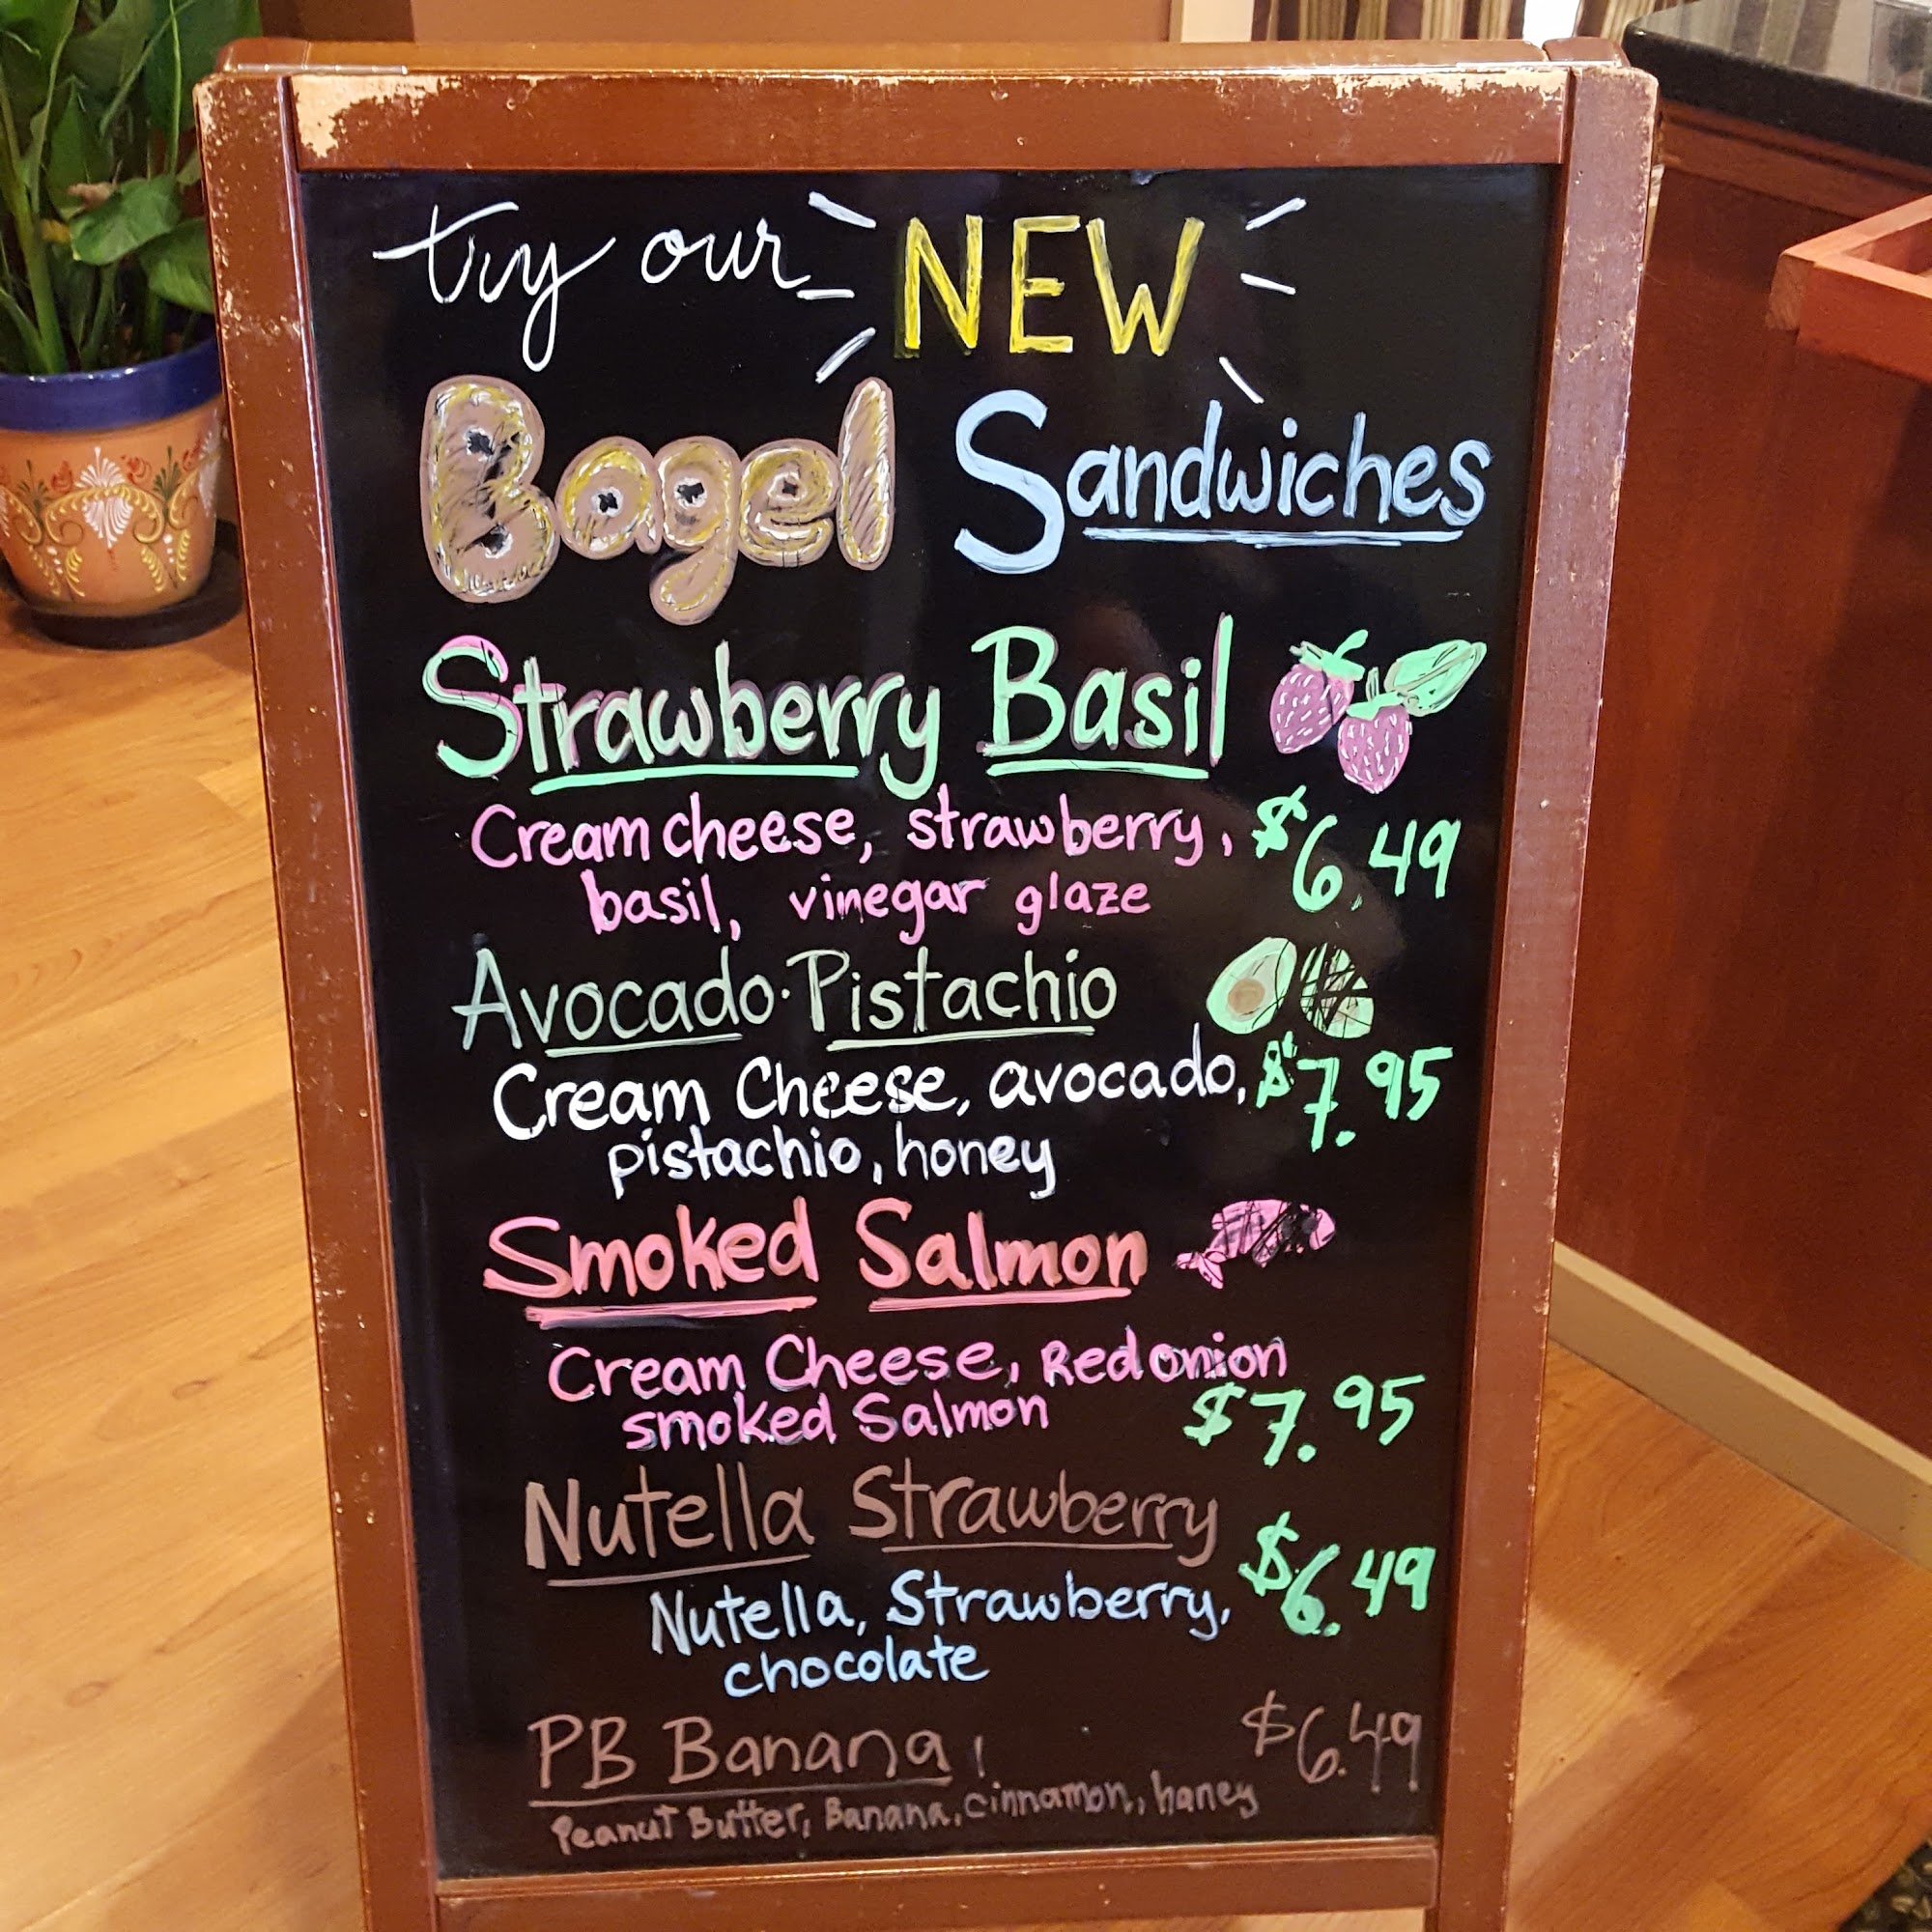 try our NEW
Bagel Sandwiches
Strawberry Basil
Cream cheese, strawberry, $6.49
basil, vinegar glaze
Avocado·Pistachio
Cream Cheese, avocado, $7.95
pistachio, honey
Smoked Salmon
Cream Cheese, Red onion
smoked Salmon $7.95
Nutella Strawberry
Nutella, Strawberry, $6.49
chocolate
PB Banana $6.49
Peanut Butter, Banana, cinnamon, honey